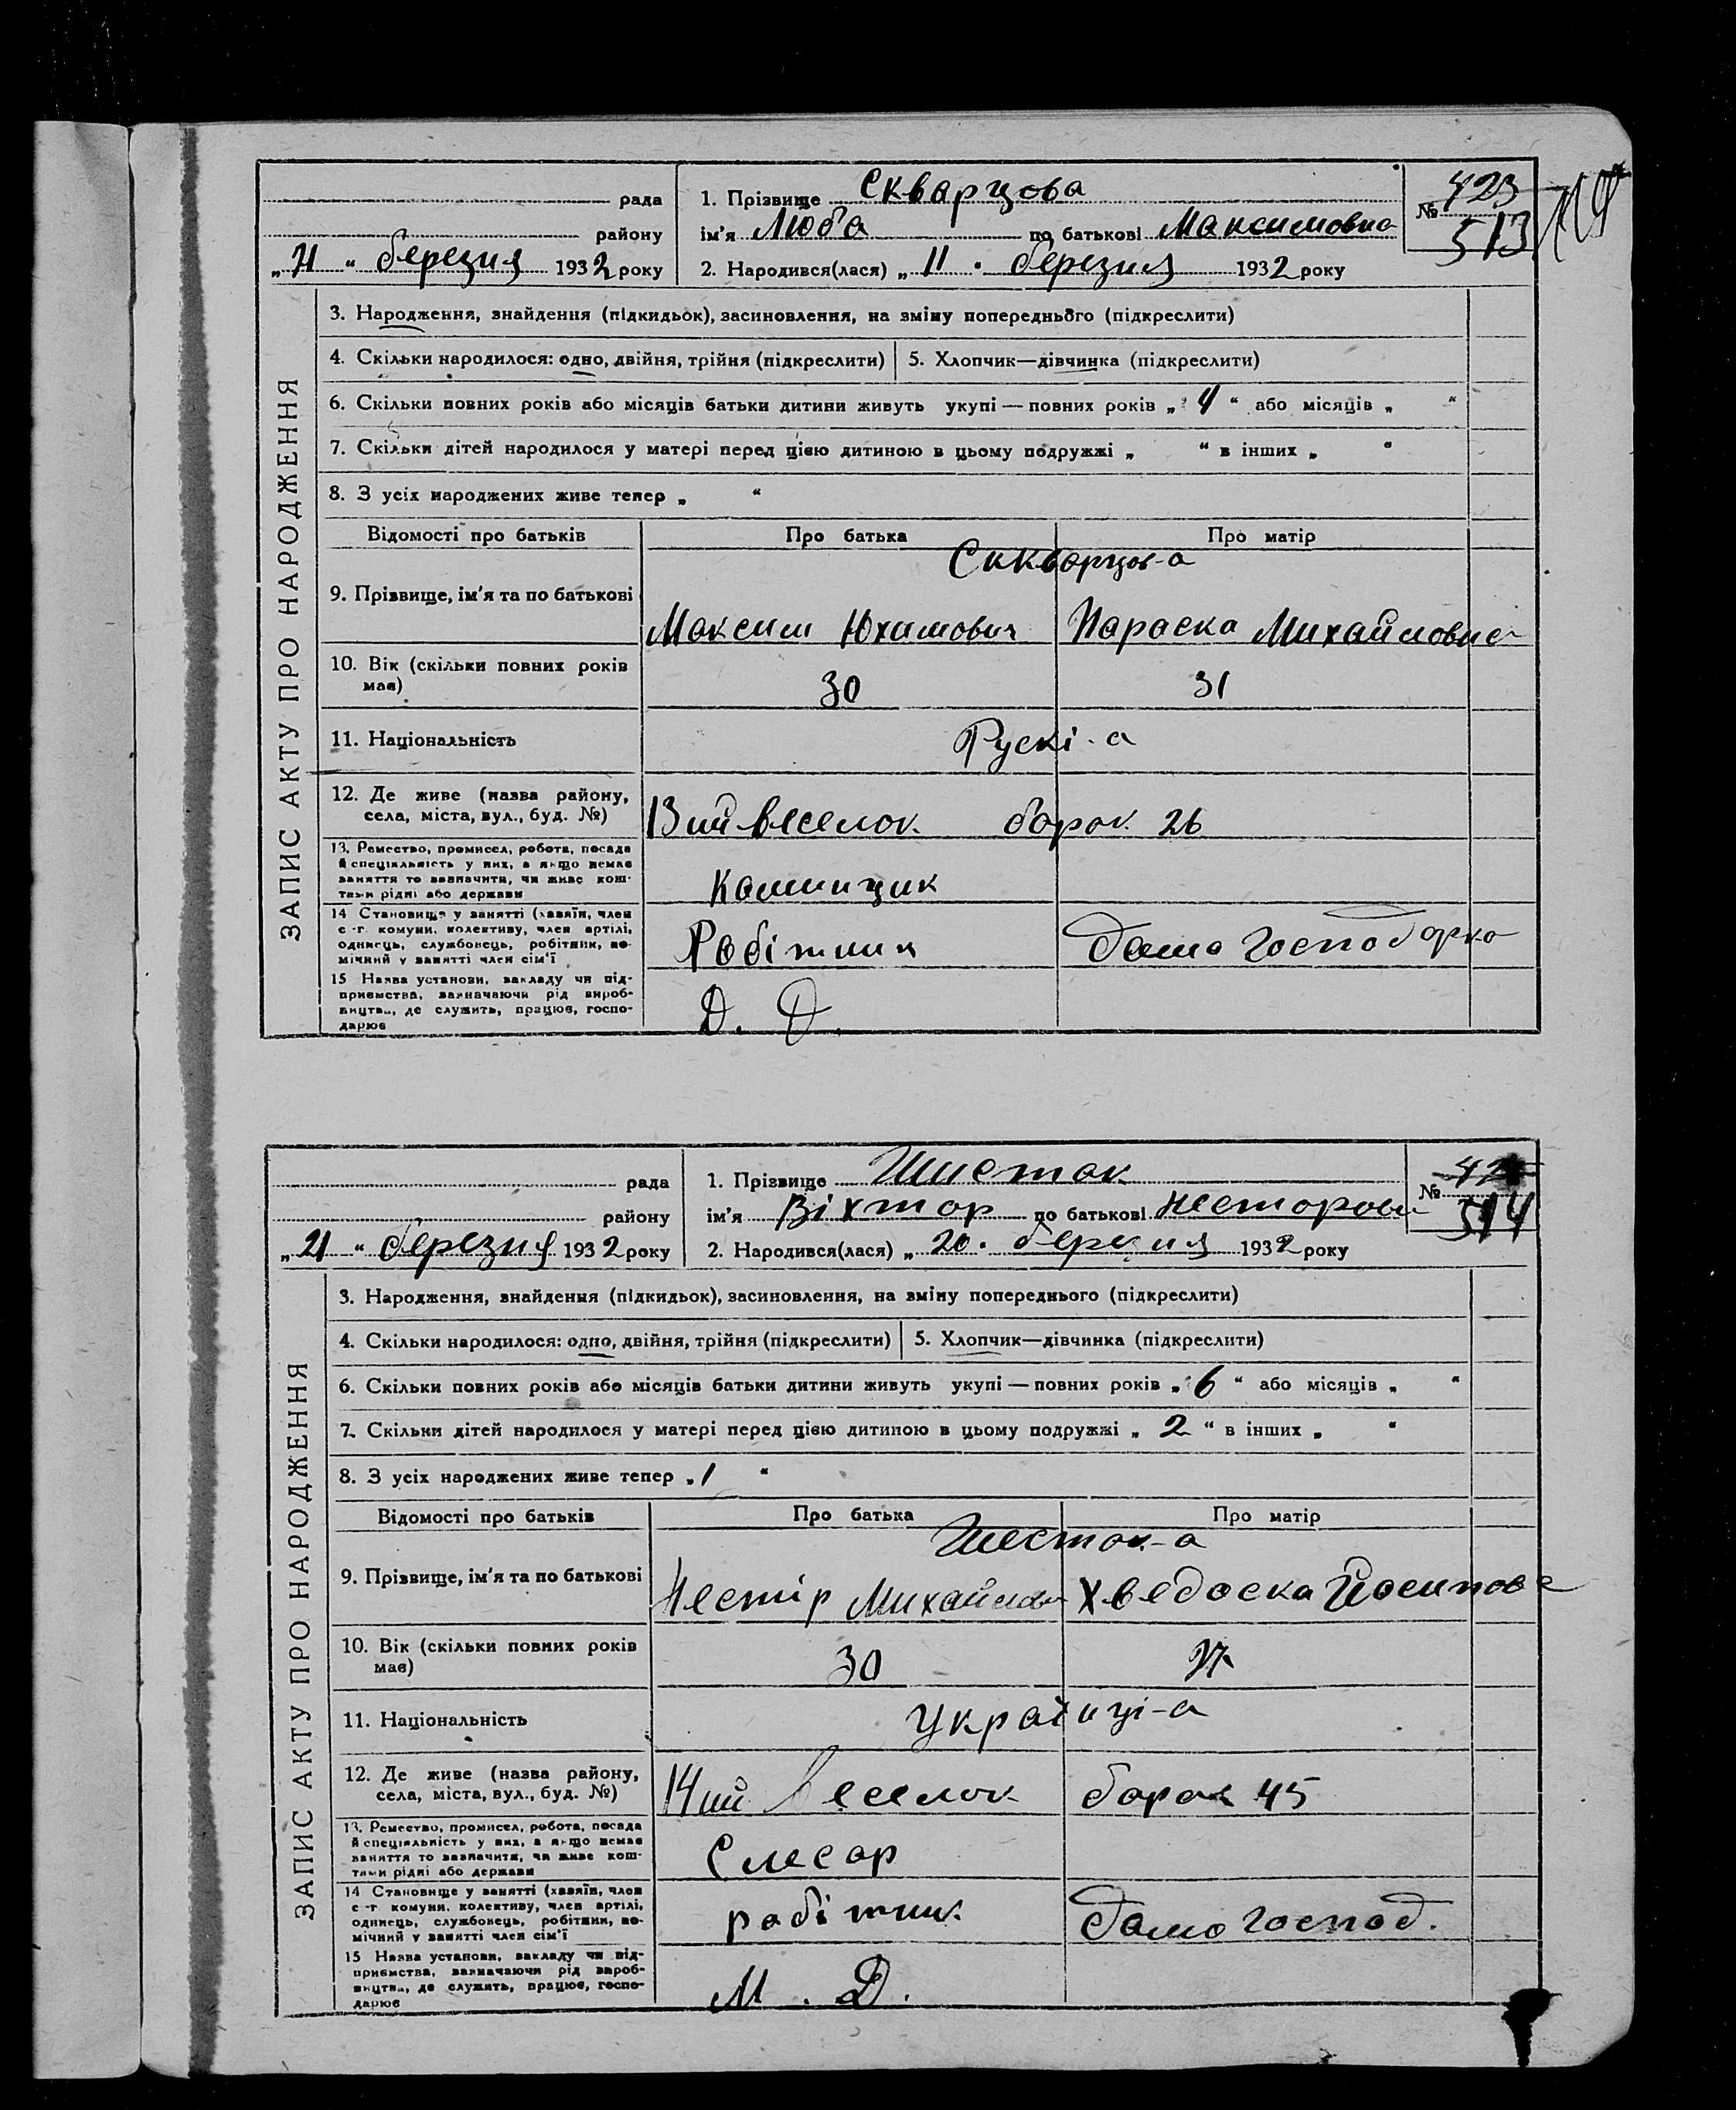 рада
1. Прізвище Скварцова
№ 423
району
ім'я Люба по батькові Максимовна
513
„21“ березня 1932 року
2. Народився(лася) „11. березня 1932 року
ЗАПИС АКТУ ПРО НАРОДЖЕННЯ
3. Народження, знайдення (підкидьок), засиновлення, на зміну попереднього (підкреслити)
4. Скільки народилося: одно, двійня, трійня (підкреслити)
5. Хлопчик—дівчинка (підкреслити)
6. Скільки повних років або місяців батьки дитини живуть укупі — повних років „4“ або місяців „ “
7. Скільки дітей народилося у матері перед цією дитиною в цьому подружжі „ “ в інших „ “
8. З усіх народжених живе тепер „ “
Відомості про батьків
Про батька
Про матір
Скварцов-а
9. Прізвище, ім'я та по батькові
Максим Юхимович
Параска Михайловна
10. Вік (скільки повних років має)
30
31
11. Національність
Рускі-а
12. Де живе (назва району,
села, міста, вул., буд. №)
13ий веселок. барак. 26
13. Ремество, промисел, робота, посада
й спеціяльність у них, а якщо немає
заняття то зазначити, чи живе кош-
тами рідні або держави
14 Становище у занятті (хазяїн, член
с.-г. комуни, колективу, член артілі,
одинець, службовець, робітник, по-
мічний у занятті член сім'ї
Робітник
Домогосподарка
15 Назва установи, закладу чи під-
приємства, зазначаючи рід вироб-
ництва, де служить, працює, госпо-
дарює
Д. Д.
рада
1. Прізвище Шисток
№
району
ім'я Віхтор по батькові Несторови
514
„21“ березня 1932 року
2. Народився(лася) „20. березня 1932 року
ЗАПИС АКТУ ПРО НАРОДЖЕННЯ
3. Народження, знайдення (підкидьок), засиновлення, на зміну попереднього (підкреслити)
4. Скільки народилося: одно, двійня, трійня (підкреслити)
5. Хлопчик—дівчинка (підкреслити)
6. Скільки повних років або місяців батьки дитини живуть укупі — повних років „6“ або місяців „ “
7. Скільки дітей народилося у матері перед цією дитиною в цьому подружжі „2“ в інших „ “
8. З усіх народжених живе тепер „1 “
Відомості про батьків
Про батька
Про матір
Шесток-а
9. Прізвище, ім'я та по батькові
Нестір Михайлов
Хведоска Йосипов
10. Вік (скільки повних років
має)
30
27
11. Національність
Українці-а
12. Де живе (назва району,
села, міста, вул., буд. №)
14ий Веселок барак 45
13. Ремество, промисел, робота, посада
й спеціяльність у них, а якщо немає
заняття то зазначити, чи живе кош-
тами рідні або держави
Слесар
14 Становище у занятті (хазяїн, член
с.-г. комуни, колективу, член артілі,
одинець, службовець, робітник, по-
мічний у занятті член сім'ї
робітник.
Домогоспод.
15 Назва установи, закладу чи під-
приємства, зазначаючи рід вироб-
ництва, де служить, працює, госпо-
дарює
М. Д.